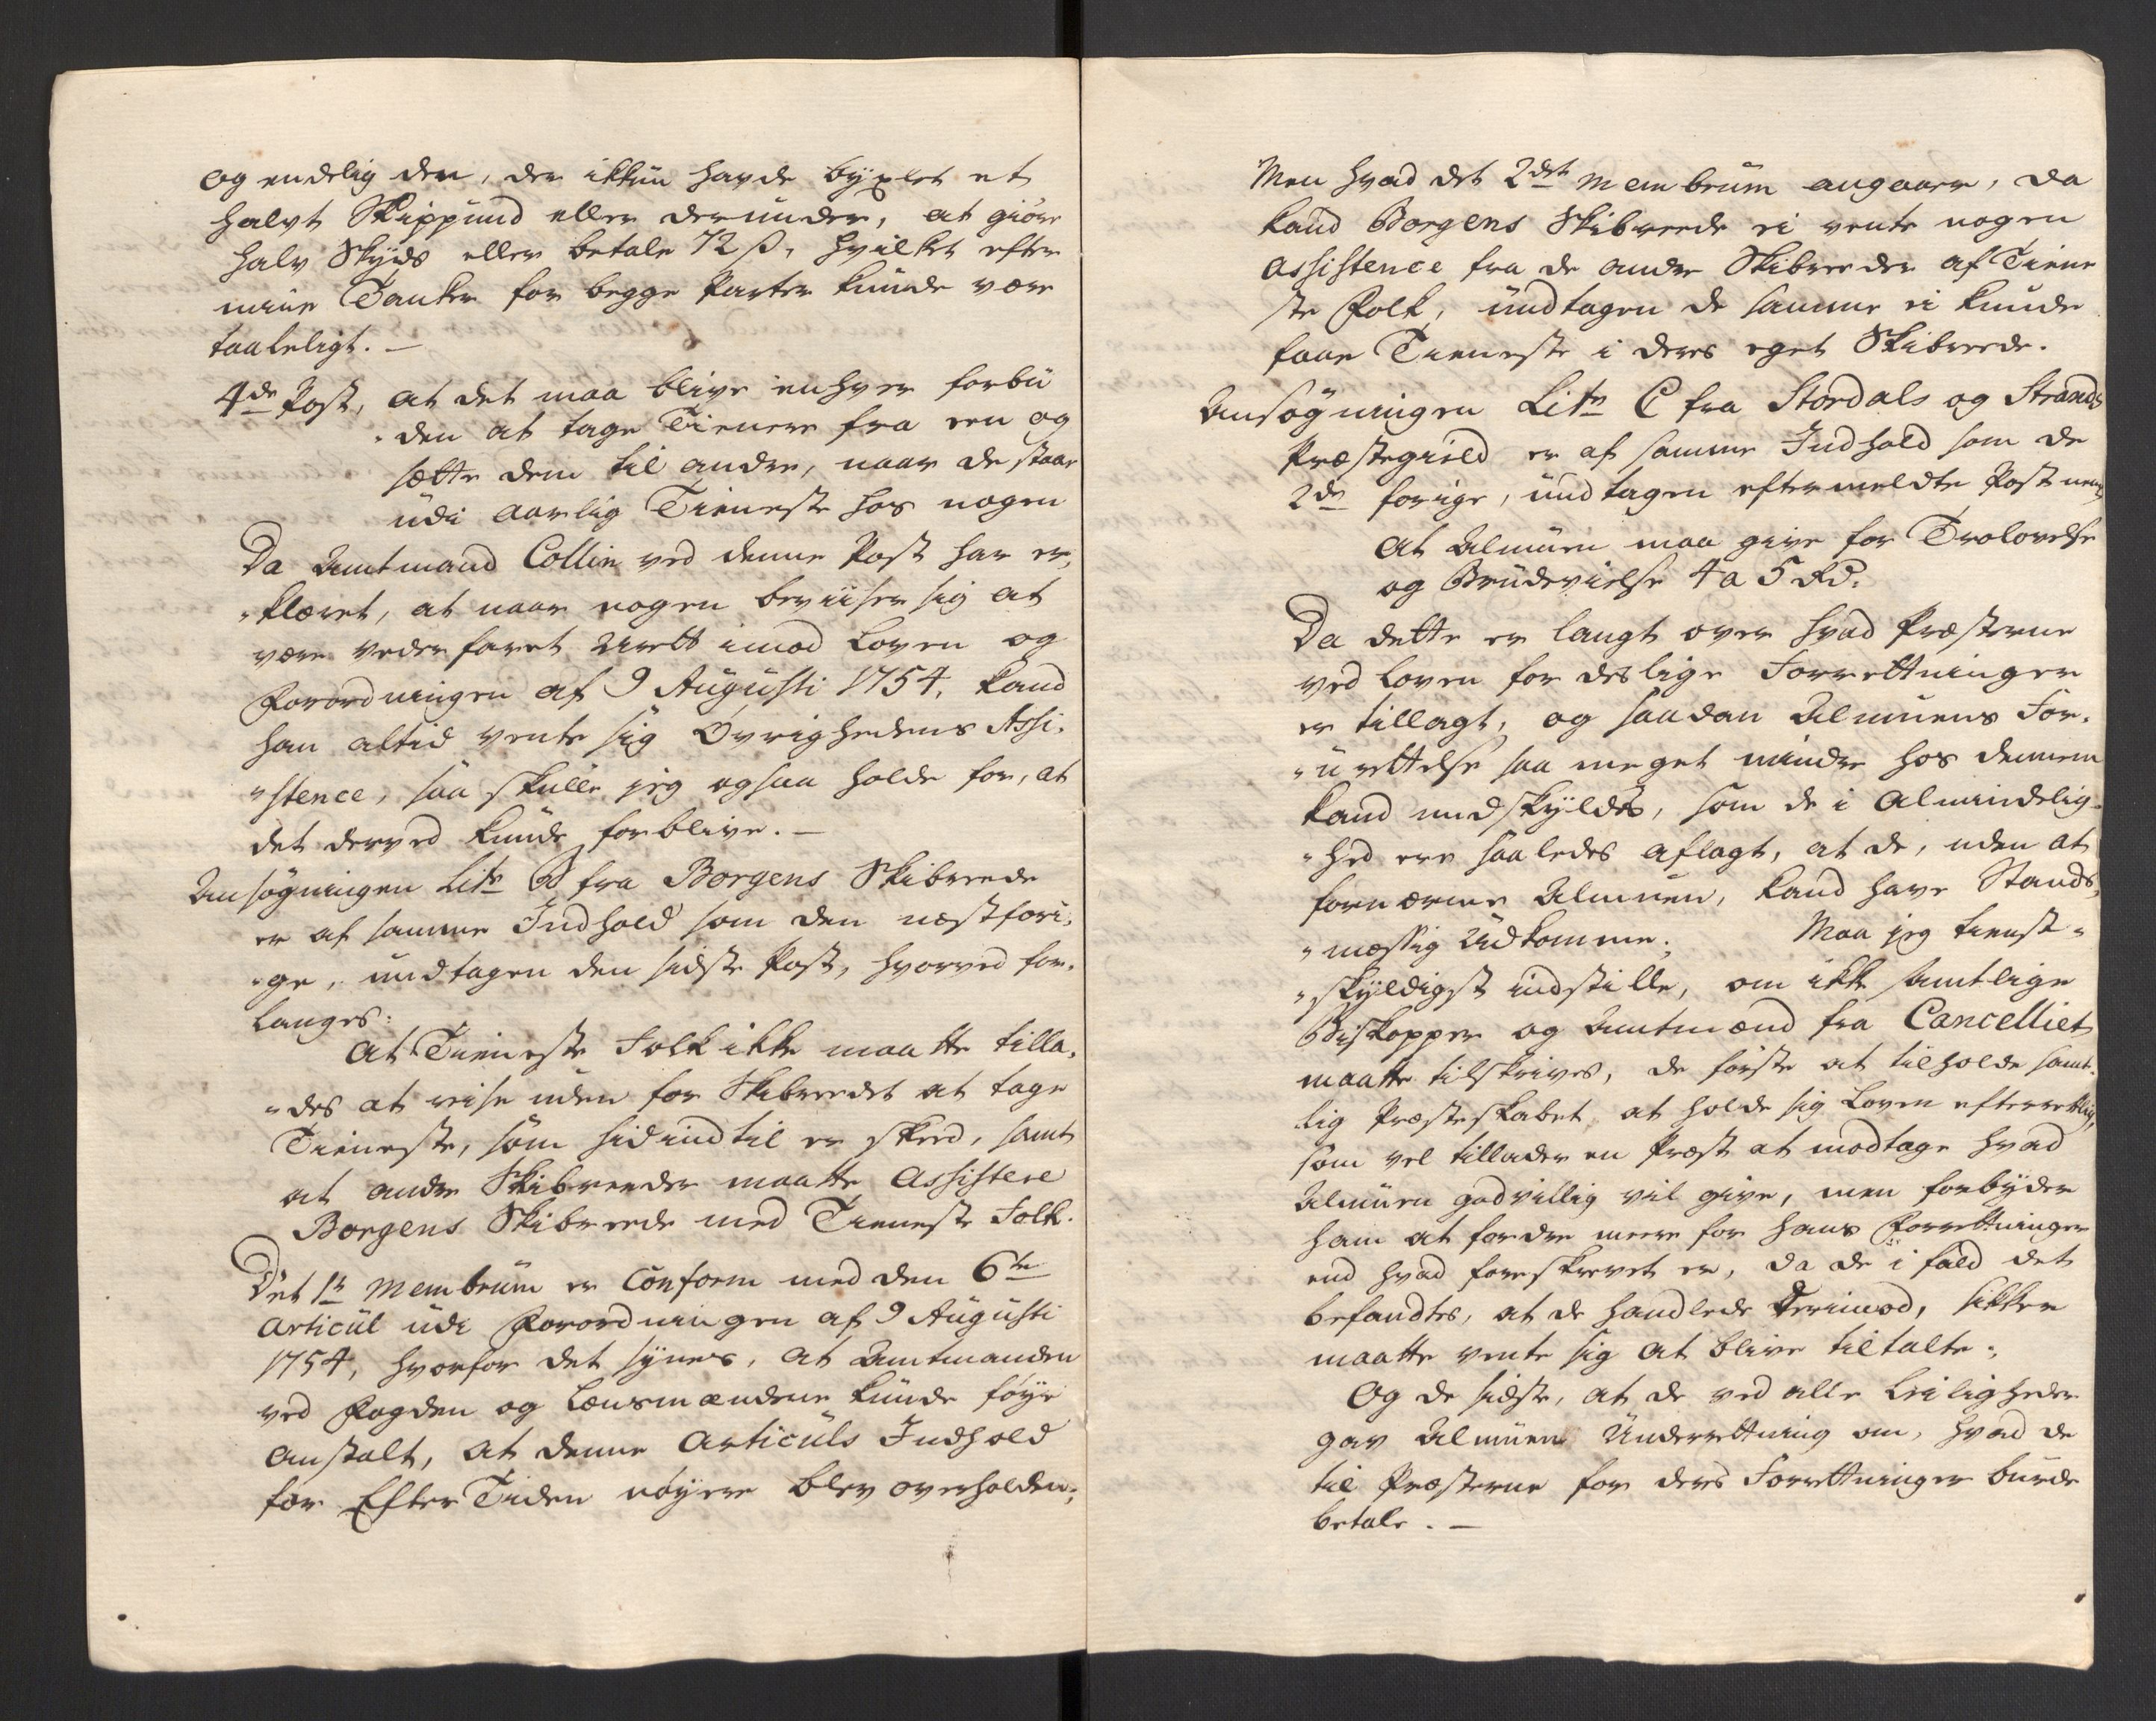 og endelig den, der ikkun havde byxlet et
halvt Skippund eller derunder, at giøre
halv Skyds eller betale 12 ß, hvilket efter
mine Tanker for begge Parter kunde være
taaleligt. —
4de Post, at det maa blive enhver forbu
„den at tage Tienere fra een og
sætte dem til andre, naar de staar
udi aarlig Tieneste hos nogen
Da Amtmand Collin ved denne Post har er„
„klæret, at naar nogen beviiser sig at
være vederfaret Urett imod Loven og
Forordningen af 9 Augusti 1754, kand
han altid vente sig Øvrighedens Assi„
„stence, saa skulle jeg ogsaa holde for, at
det derved kunde forblive. —
Ansøgningen Litr B fra Borgens Skibrede
er af samme Indhold som den næstfori„
„ge, undtagen den sidste Post, hvorved for„
langes:
At Tieneste Folk ikke maatte tilla„
„des at reise uden for Skibreedet at tage
Tieneste, som hidindtil er skeed, samt
at andre Skibreeder maatte Assistere
Borgens Skibreede med Tieneste Folk.
Det 1te Membrum er Conform med den 6te
Articul udi Forordningen af 9 Augusti
1754, hvorfor det synes, at Amtmanden
ved Fogden og Lensmændene kunde føye
Anstalt, at denne Articuls Indhold
for Efter Tiden nøyere blev overholden;
Men hvad det 2det Membrum angaaer, da
kand Borgens Skibreede ei vente nogen
Assistence fra de andre Skibreeder af Tiene
ste Folk, undtagen de samme ei kunde
faae Tieneste i deres eget Skibreede.
Ansøgningen Litr C fra Stordals og Strands
Præstegield er af samme Indhold som de
2de forige, undtagen eftermeldte Post neml
At Almuen maa give for Trolovelse
og Brudevielse 4 a 5 Rd.
Da dette er langt over hvad Præsterne
ved Loven for deslige Forrettninger
er tillagt, og saadan Almuens For„
„urettelse saa meget mindre hos dennem
kand undskyldes, som de i Almindelig„
„hed ere saaledes aflagt, at de, uden at
fornærme Almuen, kand have Stands„
„mæssig Udkomme; Maa jeg tienst„
„skyldigst indstille, om ikke samtlige
Biskopper og Amtmænd fra Cancelliet
maatte tilskrives, de første at tilholde samt„
lig Præsteskabet at holde sig Loven efterrettlig,
som vel tillader en Præst at modtage hvad
Almuen godvillig vil give, men forbyder
ham at fordre meere for hans Forrettninger
end hvad foreskrevet er, da de i fald det
befandtes, at de handlede derimod, sikker
maatte vente sig at blive tiltalte;
Og de sidste, at de ved alle Leiligheder
gav Almuen Underrettning om, hvad de
til Præsterne for deres Forrettninger burde
betale. —